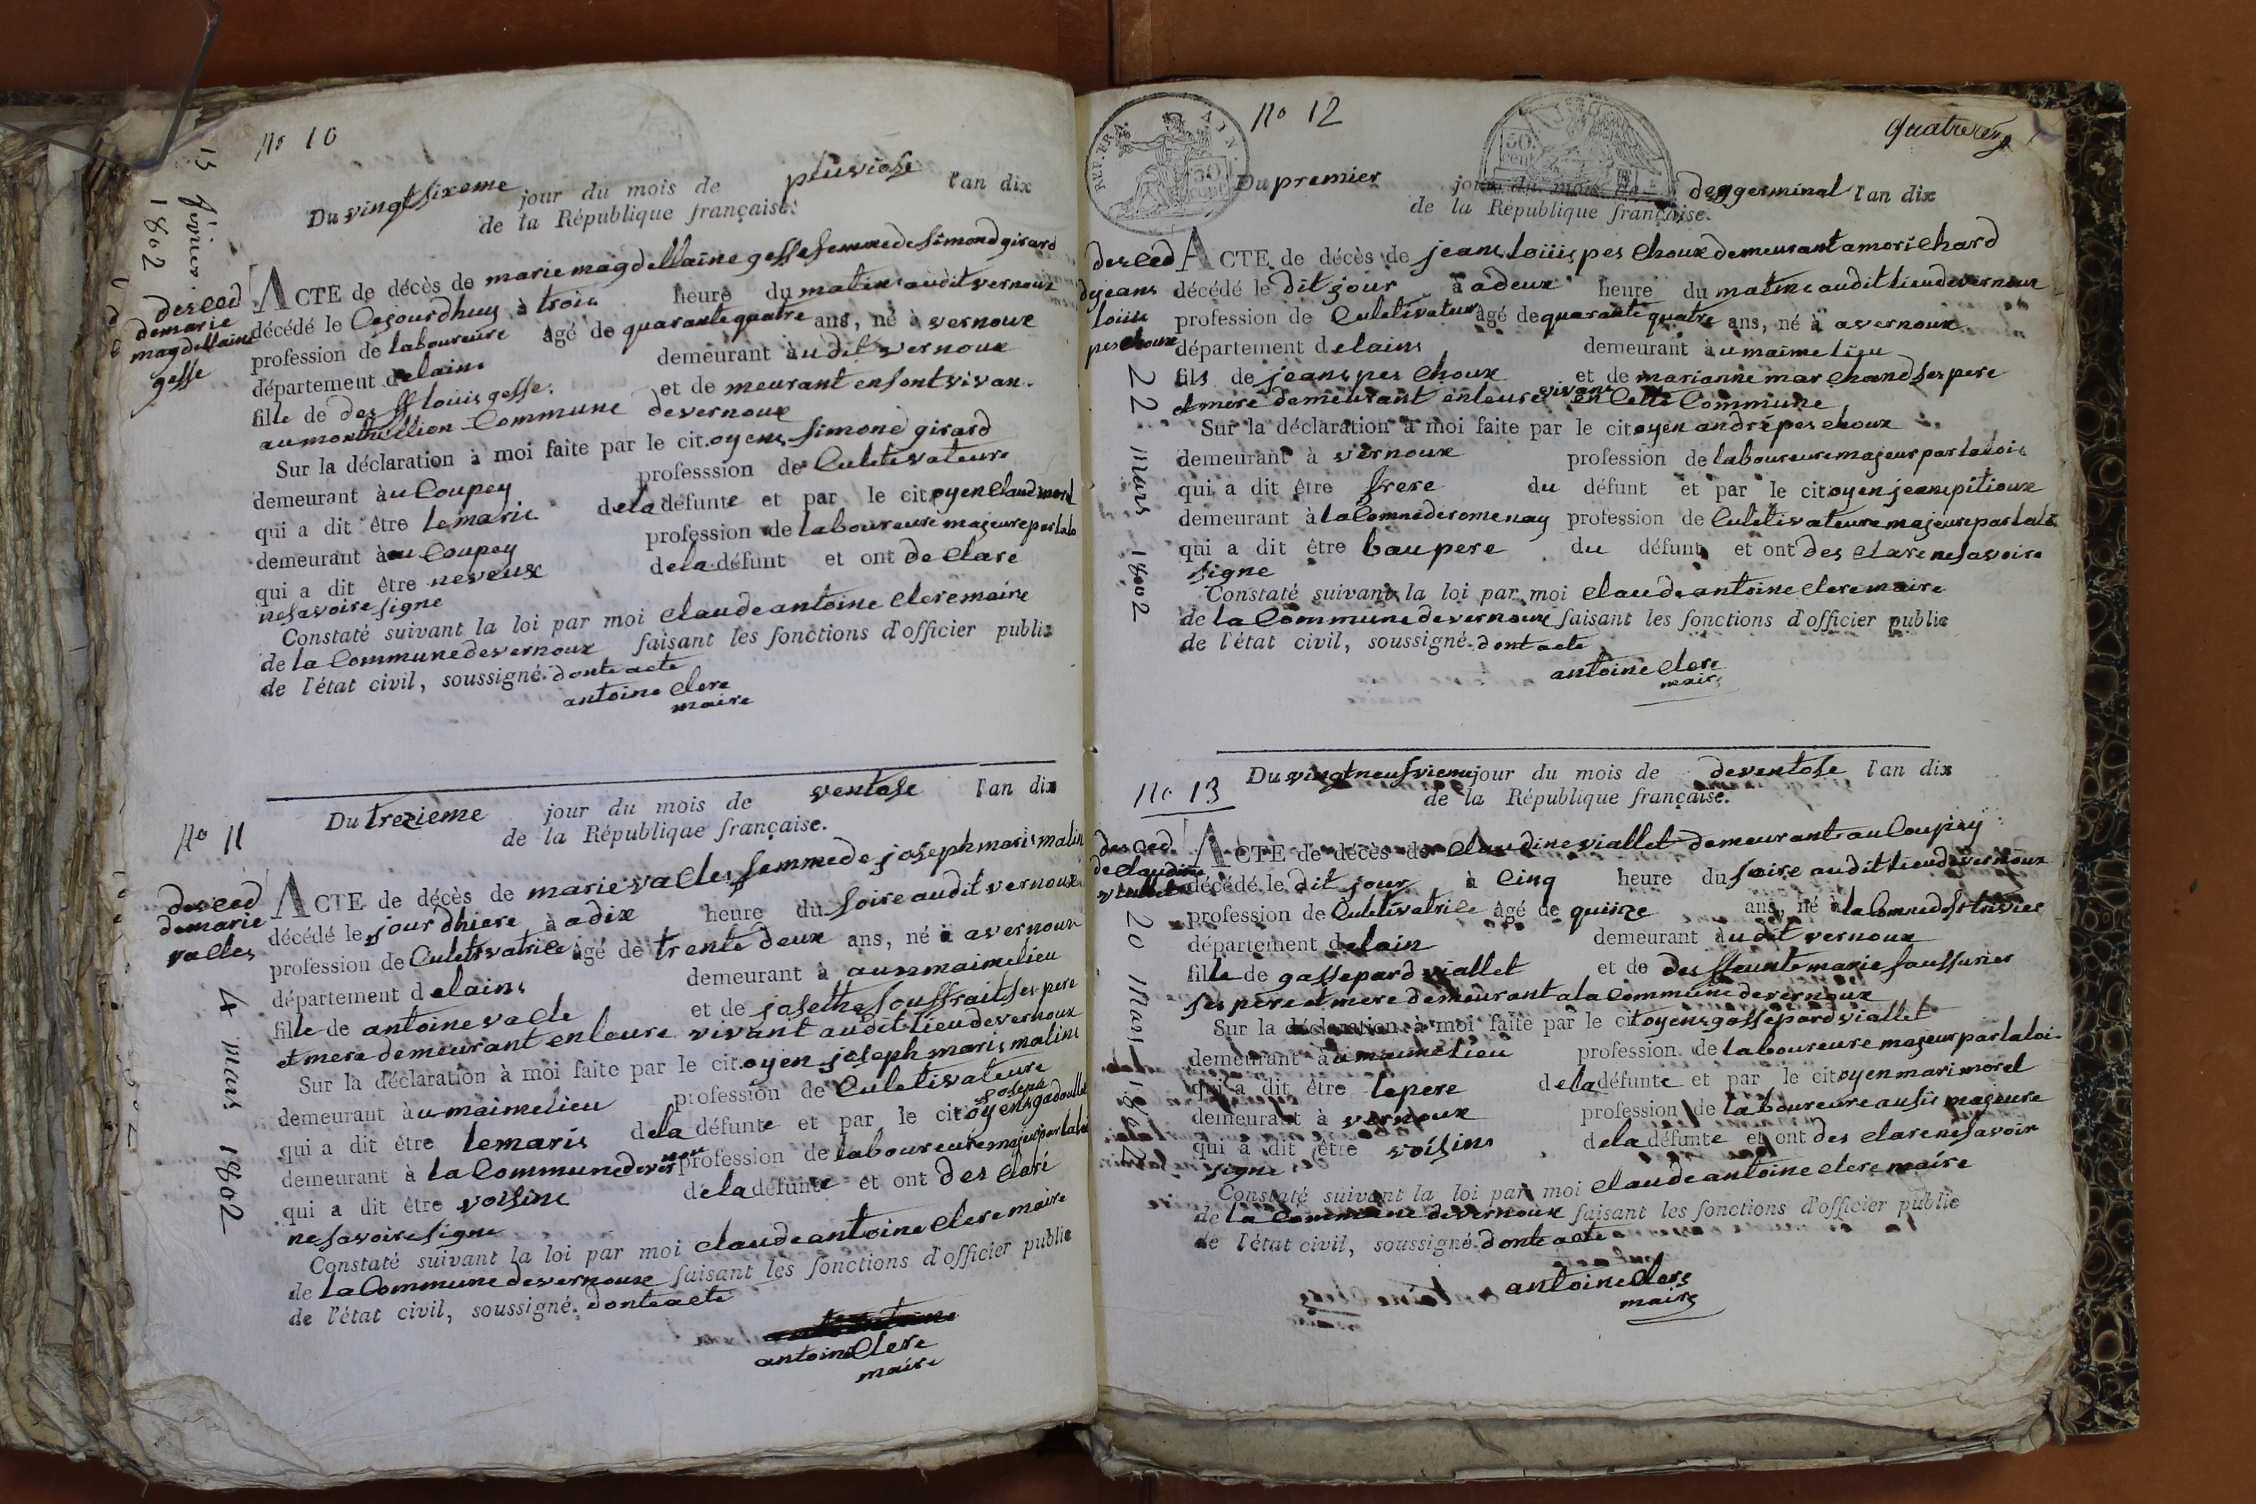 No 10
15 février 1802
Du vingt sixeme jour du mois de pluviose l'an dix
de la République française.
desced
de marie
magdellaine
gesse
ACTE de décès de marie magdellaine gesse femme de Simond girard
décédé le Cejourdhuy à trois heure du matin audit vernoux
profession de laboureure âgé de quarante quatre ans, né à vernoux
département delains demeurant àu dit vernoux
fille de des ff louis gesse. et de meurant en sont vivan.
au monthellion Commune devernoux
Sur la déclaration à moi faite par le citoyens Simone girard
demeurant àu Coupey professsion de Culetivateure
qui a dit être le marie dela défunte et par le citoyen Claud morel
demeurant àau Coupey profession de laboureure majeure par lalo
qui a dit être neveux dela défunt et ont de clare
ne savoire signe
Constaté suivant la loi par moi Claude antoine Clere maire
de la Commune devernoux faisant les fonctions d'officier public
de l'état civil, soussigné. donte acte
antoine Clere
maire
No 11
Du trezieme jour du mois de ventose l'an dix
de la République française.
desced
de marie
valles
4 mars 1802
ACTE de décès de marie valles femme de joseph maris malin
décédé le jour dhiere à adix heure du soire audit vernoux
profession de Culetivatrice âgé de trente deux ans, né à avernoux
département delains demeurant à aumaimelieu
fille de antoine valle et de josethe souffrait ses pere
et mere demeurant enleure vivant audit lieu devernoux
Sur la déclaration à moi faite par le citoyen joseph maris malins
demeurant àu maimelieu profession de Culetivateure
qui a dit être lemaris dela défunte et par le citoyens joseph gadoulle
demeurant à la Commune devernou profession de laboureure majeur par lalo
qui a dit être voisine dela défunte et ont des claré
ne savoire signe
Constaté suivant la loi par moi Claude antoine Clere maire
de la Commune devernoux faisant les fonctions d'officier public
de l'état civil, soussigné. donte acte
antoine Clere
maire
No 12
quatre
REP. FRA.
50 cent
Du premier jour du mois de de germinal l'an dix
de la République française.
desced
de jeans
loüis
peschoux
22 mars 1802
ACTE de décès de jeans loüis peschoux demeurant amorichard
décédé le dit jour à adeux heure du matine audit lieu devernoux
profession de Culetivateur âgé de quarante quatre ans, né à avernoux
département delains demeurant àu maime lieu
fils de jeans peschoux et de marianne marchand ses pere
et mere demeurant enleure vivans en Cette Commune
Sur la déclaration à moi faite par le citoyen andré peschoux
demeurant à vernoux profession de laboureure majeur par la loi
qui a dit être frere du défunt et par le citoyen jean pitioux
demeurant à la Comne de romenay profession de Culetivateure majeure par lalo
qui a dit être bau pere du défunt et ont des clare ne savoire
signe
Constaté suivant la loi par moi Claude antoine Clere maire
de la Commune devernoux faisant les fonctions d'officier public
de l'état civil, soussigné. dont acte
antoine Clere
maire
No 13
Du vingt neufvieme jour du mois de deventose l'an dix
de la République française.
desced
de Claudine
viallet
20 mars 1802
ACTE de décès de Claudine viallet demeurante au Coupey
décédé le dit jour à Cinq heure du soire audit lieu devernoux
profession de Culetivatrice âgé de quinze ans, né à la Comne de st trivier
département delain demeurant àu dit vernoux
fille de gassepard viallet et de des ffeunte marie saussurier
ses pere et mere demeurant a la Commune devernoux
Sur la déclaration à moi faite par le citoyens gassepard viallet
demeurant àumaime lieu profession de laboureure majeur par la loi
qui a dit être le pere dela défunte et par le citoyen mari morel
demeurant à vernoux profession de laboureure ausii majeure
qui a dit être voisins dela défunte et ont des clare ne savoir
signe
Constaté suivant la loi par moi Claude antoine Clere maire
de la Commune devernoux faisant les fonctions d'officier public
de l'état civil, soussigné. donte acte
antoine Clere
maire